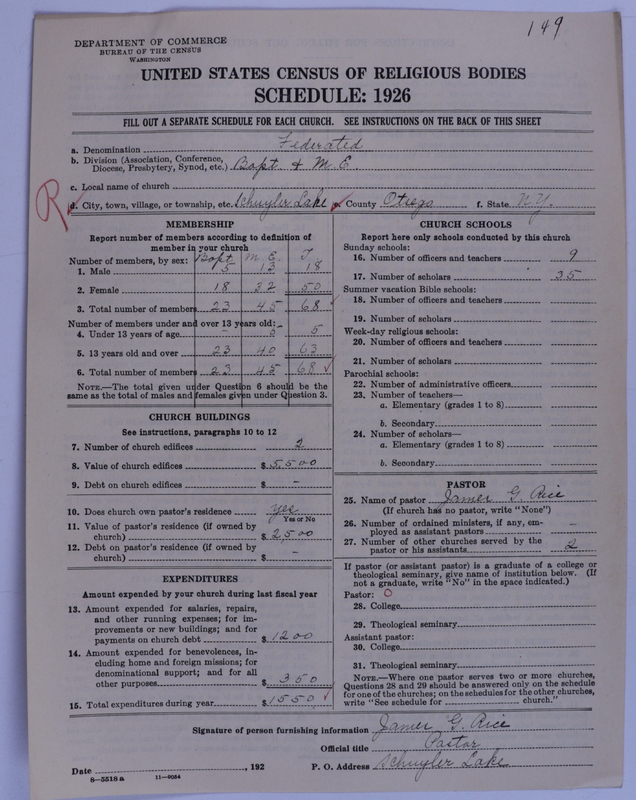 149
DEPARTMENT OF COMMERCE
BUREAU OF THE CENSUS
WASHINGTON
UNITED STATES CENSUS OF RELIGIOUS BODIES
SCHEDULE: 1926
FILL OUT A SEPARATE SCHEDULE FOR EACH CHURCH. SEE INSTRUCTIONS ON THE BACK OF THIS SHEET
a. Denomination Federated
b. Division (Association, Conference,
Diocese, Presbytery, Synod, etc.) Bapt & M. E.
c. Local name of church
R d. City, town, village, or township, etc. Schuyler Lake e. County Otsego f. State N.Y.
MEMBERSHIP
Report number of members according to definition of
member in your church
Number of members, by sex: Bapt. M. E. T
1. Male 5 13 18
2. Female 18 32 50
3. Total number of members 23 45 68
Number of members under and over 13 years old:
4. Under 13 years of age - 5 5
5. 13 years old and over 23 40 63
6. Total number of members 23 45 68
NOTE.—The total given under Question 6 should be the
same as the total of males and females given under Question 3.
CHURCH BUILDINGS
See instructions, paragraphs 10 to 12
7. Number of church edifices 2
8. Value of church edifices $5,500
9. Debt on church edifices $ -
10. Does church own pastor's residence? Yes
Yes or No
11. Value of pastor's residence (if owned by
church) $2,500
12. Debt on pastor's residence (if owned by
church) $ -
EXPENDITURES
Amount expended by your church during last fiscal year
13. Amount expended for salaries, repairs,
and other running expenses; for im-
provements or new buildings; and for
payments on church debt $1200
14. Amount expended for benevolences, in-
cluding home and foreign missions; for
denominational support; and for all
other purposes $350
15. Total expenditures during year $1550
CHURCH SCHOOLS
Report here only schools conducted by this church
Sunday schools:
16. Number of officers and teachers 9
17. Number of scholars 35
Summer vacation Bible schools:
18. Number of officers and teachers
19. Number of scholars
Week-day religious schools:
20. Number of officers and teachers
21. Number of scholars
Parochial schools:
22. Number of administrative officers
23. Number of teachers—
a. Elementary (grades 1 to 8)
b. Secondary
24. Number of scholars—
a. Elementary (grades 1 to 8)
b. Secondary
PASTOR
25. Name of pastor James G. Rice
(If church has no pastor, write "None")
26. Number of ordained ministers, if any, em-
ployed as assistant pastors -
27. Number of other churches served by the
pastor or his assistants 2
If pastor (or assistant pastor) is a graduate of a college or
theological seminary, give name of institution below. (If
not a graduate, write "No" in the space indicated.)
Pastor: O
28. College
29. Theological seminary
Assistant pastor:
30. College
31. Theological seminary
NOTE.—Where one pastor serves two or more churches,
Questions 28 and 29 should be answered only on the schedule
for one of the churches; on the schedules for the other churches,
write "See schedule for church."
Signature of person furnishing information James G. Rice
Official title Pastor
Date , 192 P. O. Address Schuyler Lake
8—5518 a 11—9054